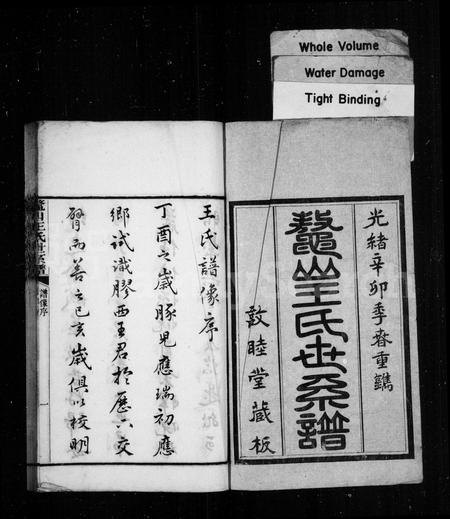 Whole Volume
Water Damage
Tight Binding
光緒辛卯季春重鐫
鼇山王氏世系譜
敦睦堂藏板
王氏譜像序
丁酉之歲豚兒應瑞初應
鄉試識膠西王君於歷下交
臂而善之己亥歲俱以校明
鼇山王氏世系譜
譜像序
一